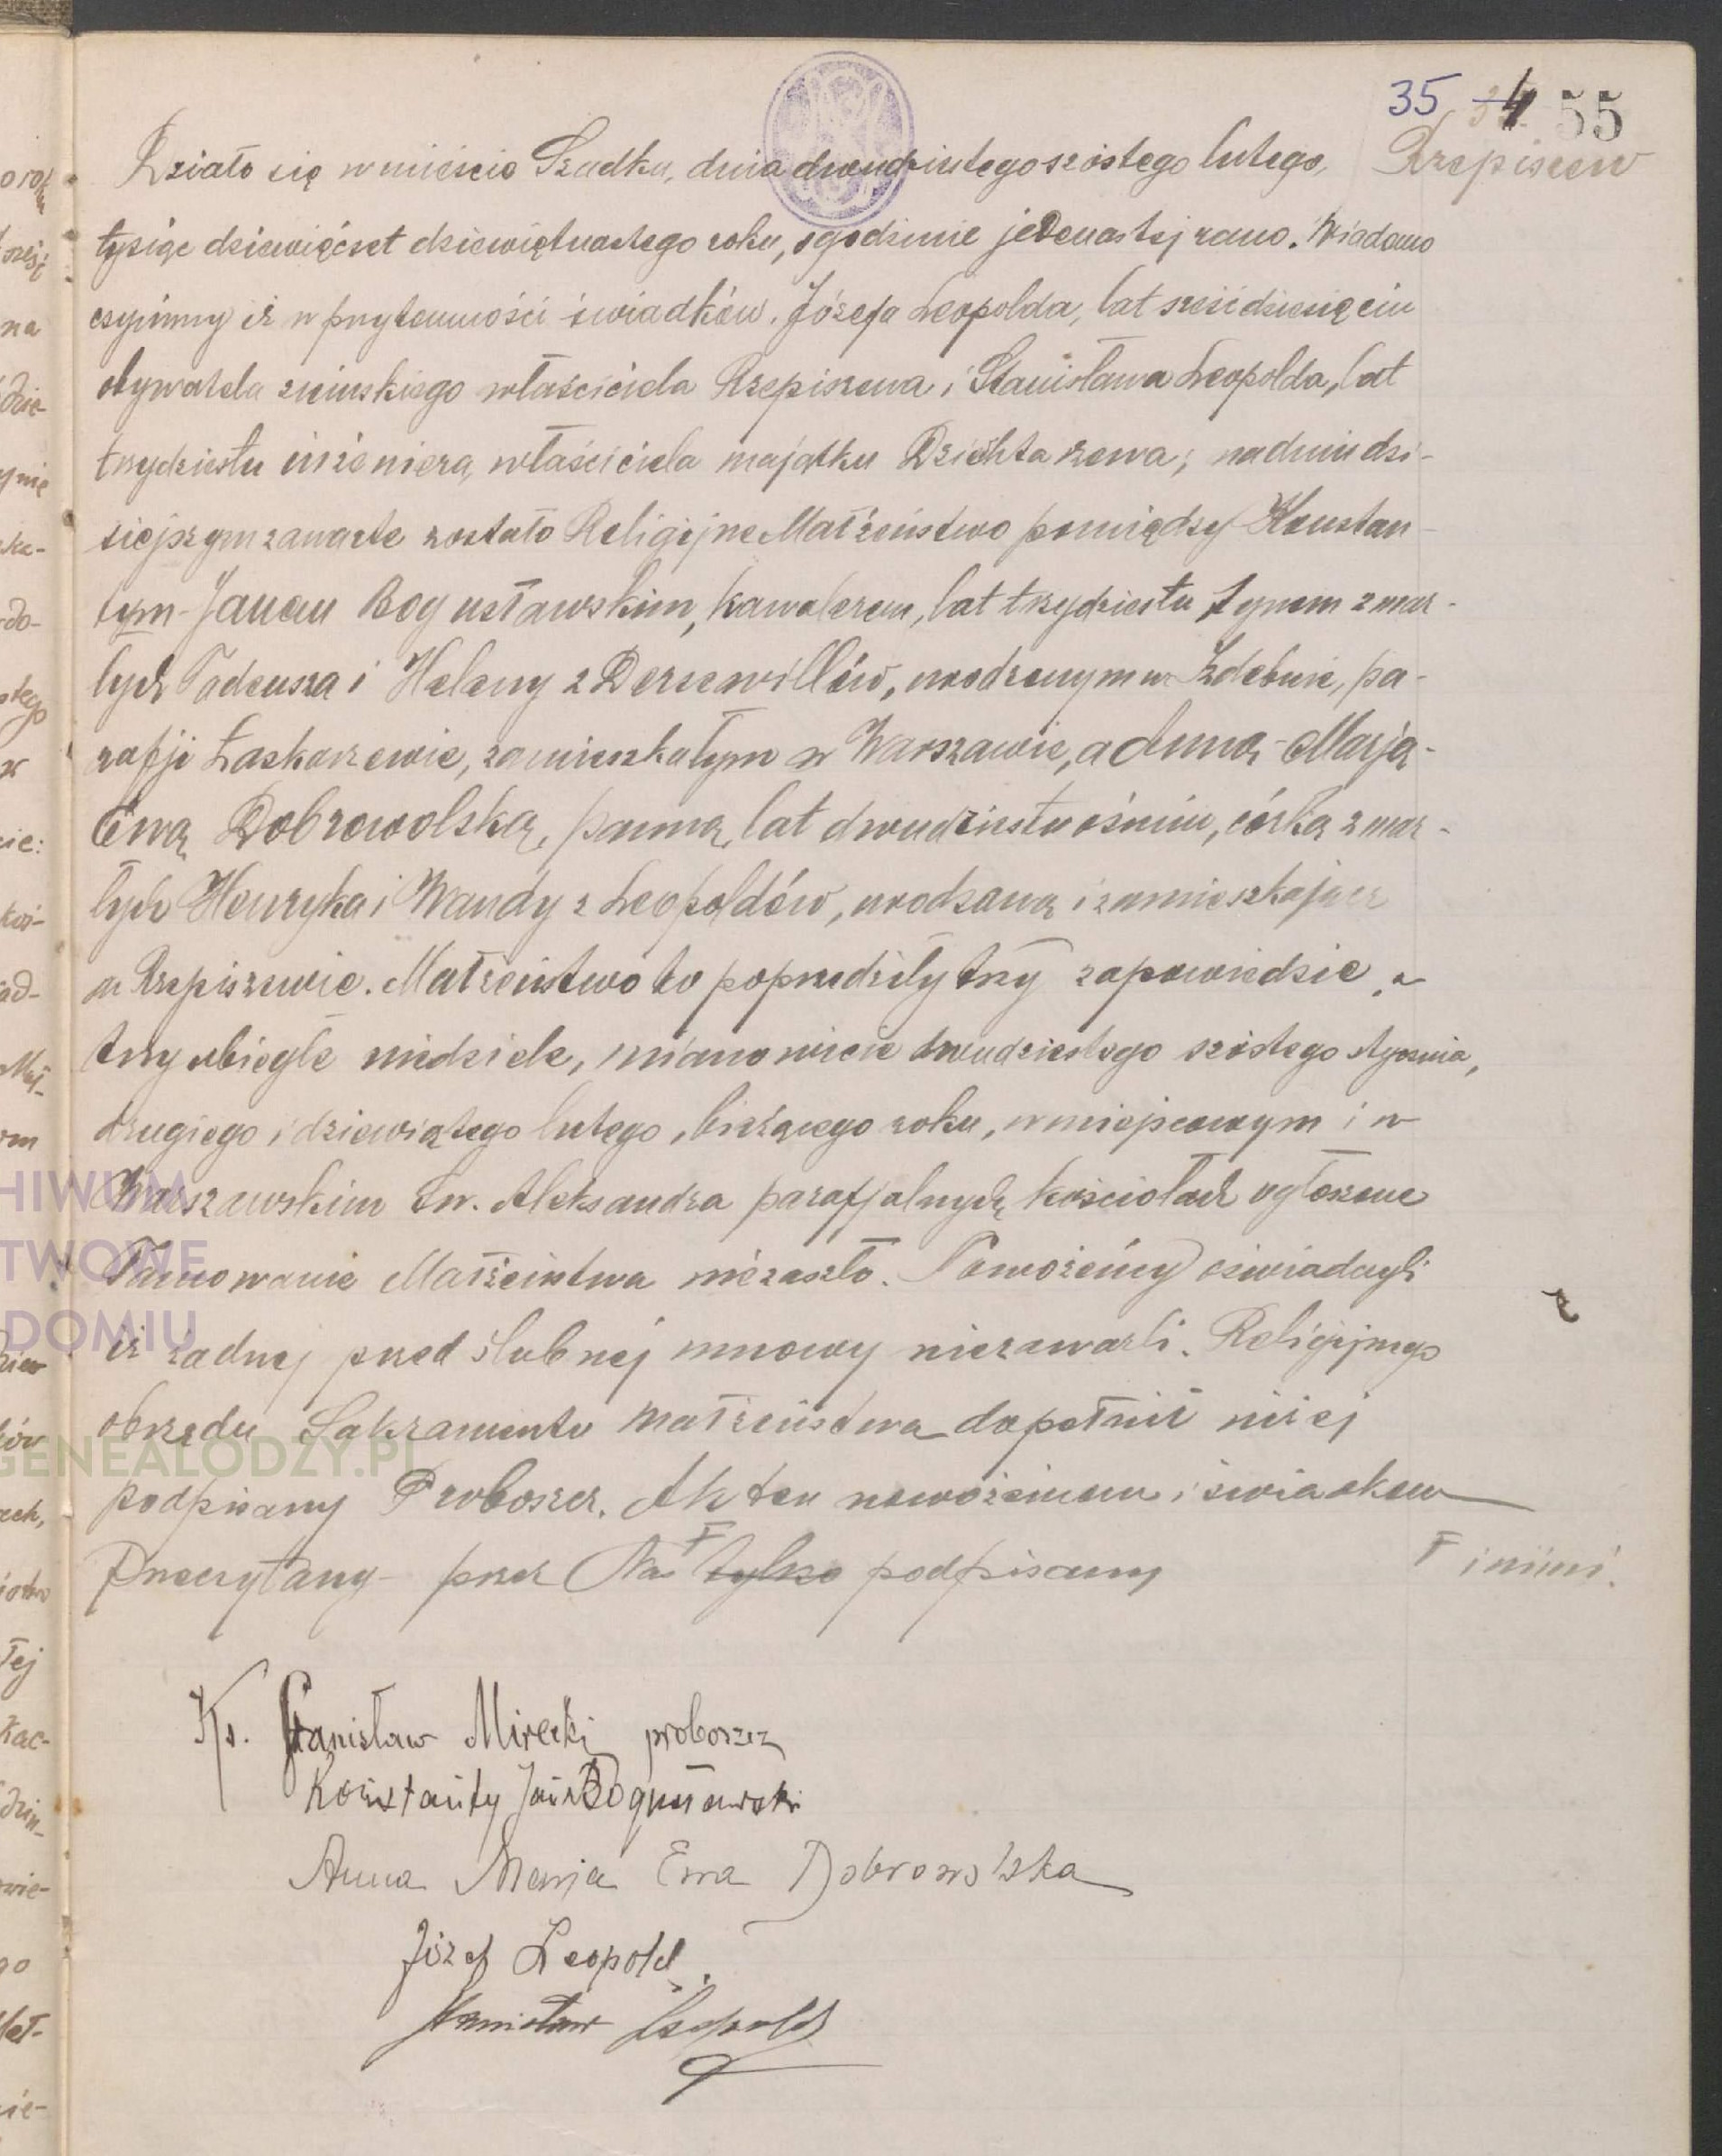 35 4 55
Rzepiszew
Działo się w mieście Szadku, dnia dwudziestego szóstego lutego,
tysiąc dziewięćset dziewiętnastego roku, o godzinie jedenastej rano. Wiadomo
czynimy iż w przytomności świadków. Józefa Leopolda, lat sześćdziesięciu
obywatela ziemskiego właściciela Rzepiszewa i Stanisława Leopolda, lat
trzydziestu inżeniera, właściciela majątku Dziektarzewa; na dniu dzi-
siejszym zawarte zostało Religijne Małżeństwo pomiędzy Konstan-
tym-Janem Bogusławskim, kawalerem, lat trzydziestu synem zmar-
łych Tadeusza i Heleny z Derzewillów, urodzonym w Izdebnie, pa-
rafji Łaskarzewie, zamieszkałym w Warszawie, a Anną-Marją-
Ewą Dobrowolską, panną, lat dwudziestu ośmiu, córką zmar-
łych Henryka i Wandy z Leopoldów, urodzoną i zamieszkającą
w Rzepiszewie. Małżeństwo to poprzedziły trzy zapowiedzie, w
trzy ubiegłe niedziele, mianowicie dwudziestego szóstego stycznia,
drugiego i dziewiątego lutego, bieżącego roku, w miejscowym i w
Warszawskim św. Aleksandra parafjalnych kościołach ogłoszone
Tamowanie Małżeństwa niezaszło. Nowożeńcy oświadczyli
iż żadnej przed ślubnej umowy niezawarli. Religijnego
obrzędu Sakramentu małżeństwa dopełnił niżej
podpisany Proboszcz. Akt ten nowożeńcom i świadkom
Przeczytany przez Nas tylko podpisany
i nimi.
Ks. Stanisław Mirecki proboszcz
Konstanty Jan Bogusławski
Anna Marja Ewa Dobrowolska
Józef Leopold.
Stanisław Leopold
HIWUM
TWOWE
DOMIU
GENEALODZY.PL